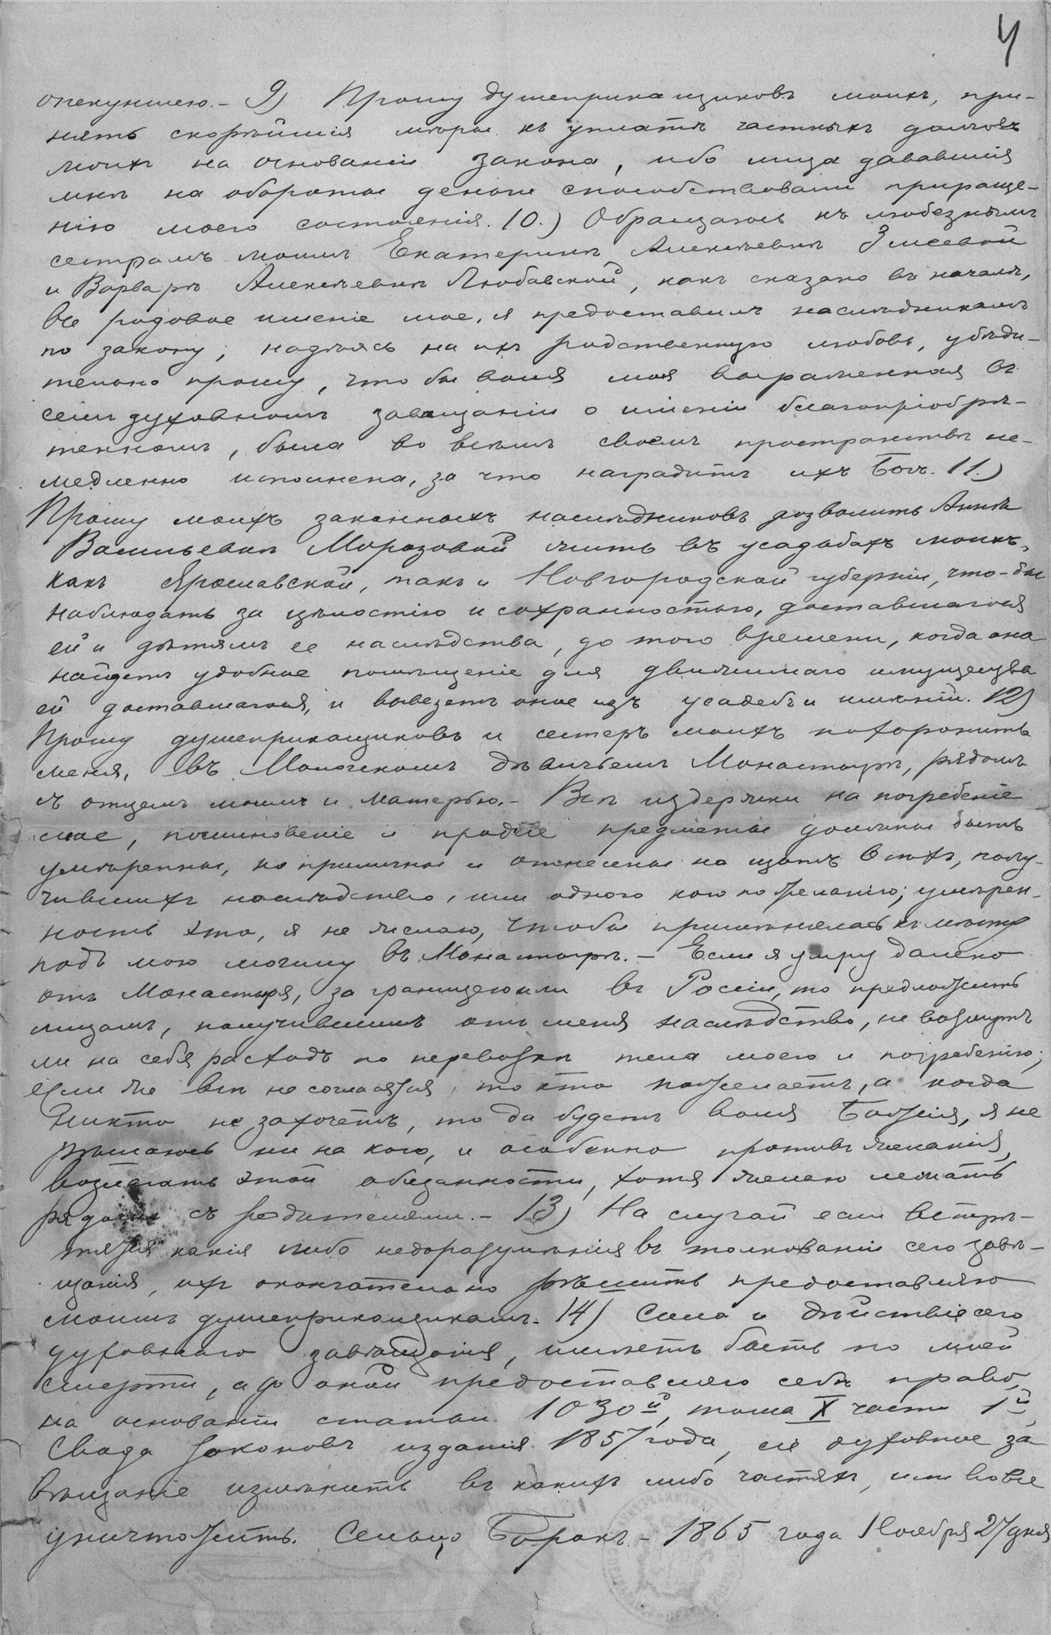 4
опекуншею. - 9) Прошу душеприкащиковъ моихъ, при-
нять скорѣйшія мѣры къ уплатѣ частныхъ долговъ
моихъ на основаніи закона, ибо лица дававшія
мнѣ на обороты деньги способствовали прираще-
нію моего состоянія. 10.) Обращаюсь къ любезнымъ
сестрамъ моимъ Екатеринѣ Алексѣевнѣ Змеевой
и Варварѣ Алексѣевнѣ Любавской, какъ сказано въ началѣ,
все родовое имѣніе мое, я предоставилъ наслѣдникамъ
по закону; надѣясь на ихъ родственную любовь, убѣди-
тельно прошу, что бы воля моя выраженная въ
семъ духовномъ завѣщаніи о имѣніи благопріобрѣ-
тенномъ, была во всемъ своемъ пространствѣ не-
медленно исполнена, за что наградитъ ихъ Богъ. 11.)
Прошу моихъ законныхъ наслѣдниковъ дозволить Аннѣ
Васильевнѣ Морозовой жить въ усадьбахъ моихъ,
какъ Ярославской, такъ и Новгородской губерніи, что-бы
наблюдать за цѣлостію и сохранностью, доставшагося
ей и дѣтямъ ее наслѣдства, до того времени, когда она
найдетъ удобное помѣщеніе для движимаго имущества
ей доставшагося, и вывезетъ оное изъ усадебъ и имѣній. 12)
Прошу душеприкащиковъ и сестеръ моихъ похоронить
меня, въ Мологскомъ Дѣвичьемъ Монастырѣ, рядомъ
съ отцемъ моимъ и матерью. - Всѣ издержки на погребеніе
мое, поминовеніе и прочіе предметы должны быть
умѣренные, но приличные и отнесены на щотъ всѣхъ, полу-
чившихъ наслѣдство, или одного кого по желанію; умѣрен-
ность эта, я не желаю, чтобы примѣнялась къ мѣсту
подъ мою могилу въ Монастырѣ. - Если я умру далеко
отъ Монастыря, за границею или въ Россіи, то предложить
лицамъ, получившимъ отъ меня наслѣдство, не возмутъ
ли на себя расходъ по перевозкѣ тела моего и погребенію;
если же всѣ не согласятся, то кто пожелаетъ, а когда
никто не захочетъ, то да будетъ воля Божія, я не
рѣшаюсь ни на кого, и особенно противъ желанія,
возлагать этой обязанности, хотя желаю лежать
рядомъ съ родителями. - 13) На случай если встрѣ-
тятся какія либо недоразумѣнія въ толкованіи сего завѣ-
щанія, ихъ окончательно рѣшить предоставляю
моимъ душеприкащикамъ. 14) Сила и дѣйствіе сего
духовнаго завѣщанія, имѣетъ быть по моей
смерти, а до оной предоставляю себѣ право,
на основаніи статьи 1030й, тома X части 1й,
Свода Законовъ изданія 1857 года, сіе духовное за
вѣщаніе измѣнить въ какихъ либо частяхъ, или вовсе
уничтожить. Сельцо Борокъ. - 1865 года Ноября 27 дня